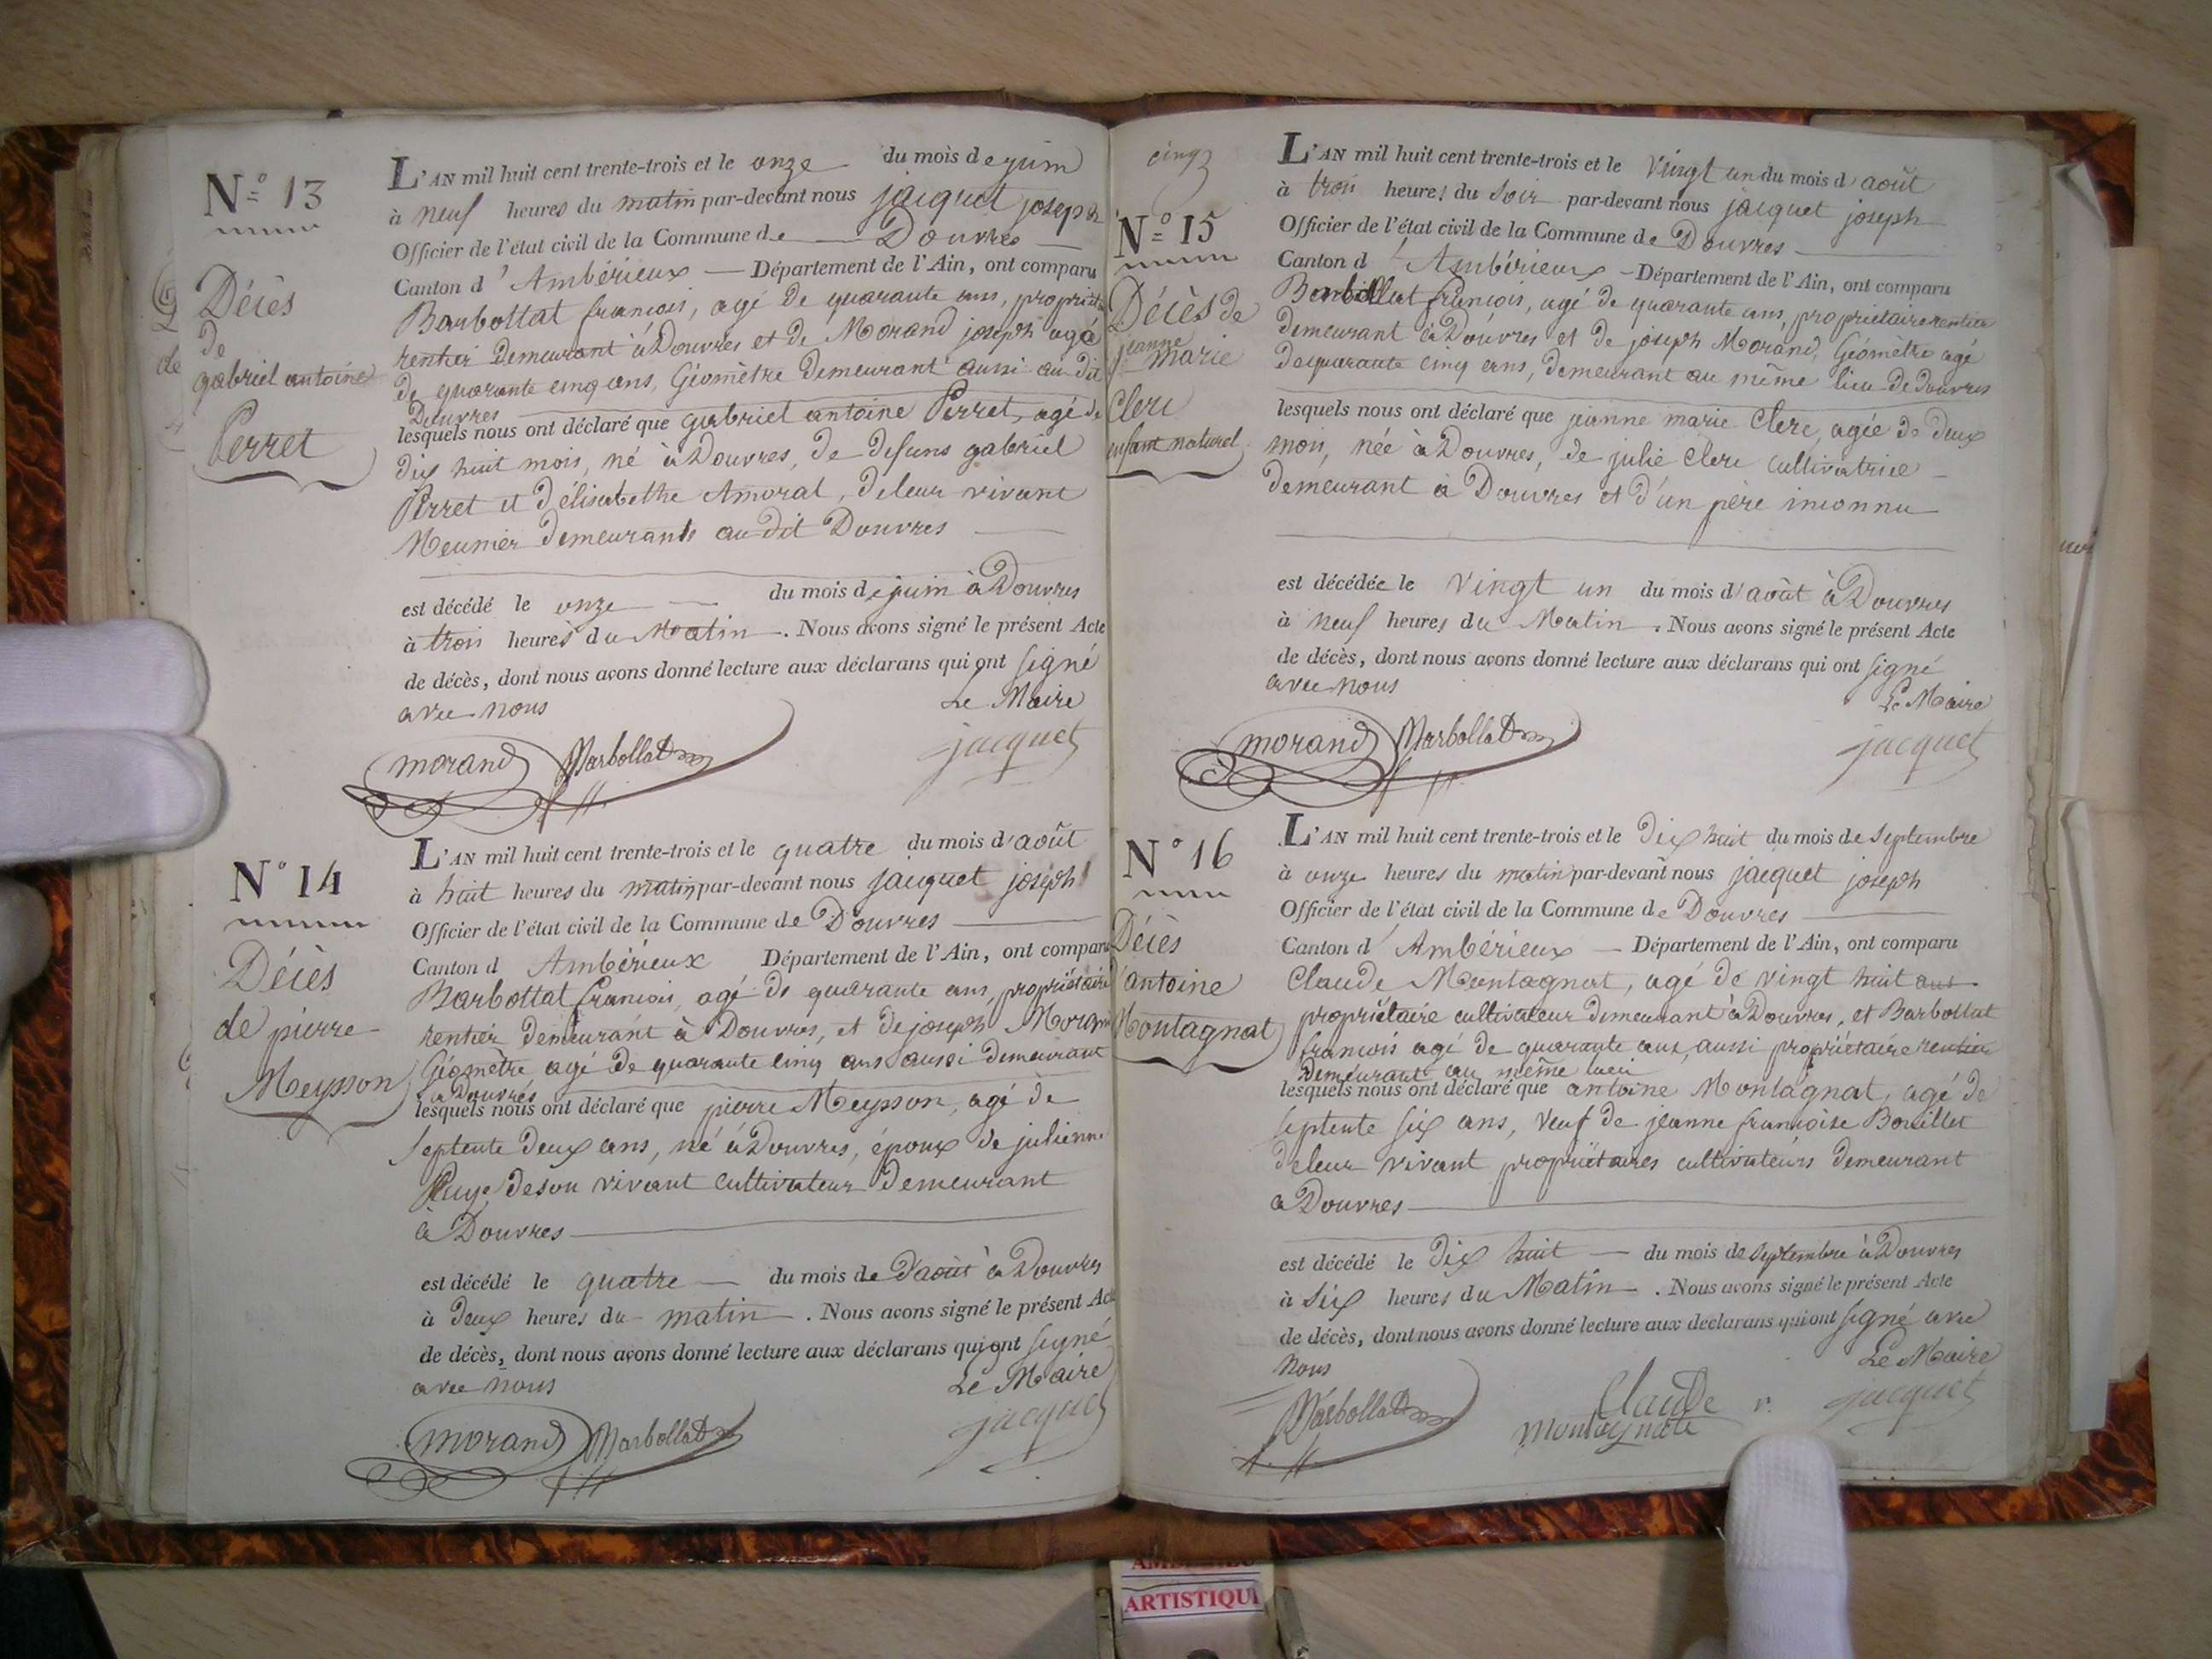 N.º 13
Décès
de
gabriel antoine
Perret
L'AN mil huit cent trente-trois et le onze du mois de juin
à neuf heures du matin par-devant nous jacquet joseph
Officier de l'état civil de la Commune de Douvres
Canton d'Ambérieux Département de l'Ain, ont comparu
Barbollat francois, agé de quarante ans, propriétaire
rentier demeurant à Douvres et de Morand joseph agé
de quarante cinq ans, Géomètre demeurant aussi au dit
Douvres
lesquels nous ont déclaré que gabriel antoine Perret, agé de
dix huit mois, né à Douvres, de defuns gabriel
Perret et d'élisabethe Amoral, deleur vivant
Meunier demeurants au dit Douvres
est décédé le onze du mois de juin à Douvres
à trois heures du Matin. Nous avons signé le présent Acte
de décès, dont nous avons donné lecture aux déclarans qui ont signé
avec nous
Le Maire
morand Barbollat jacquet
N.º 14
Décès
de pierre
Meysson
L'AN mil huit cent trente-trois et le quatre du mois d'août
à huit heures du matin par-devant nous jacquet joseph
Officier de l'état civil de la Commune de Douvres
Canton d Ambérieux Département de l'Ain, ont comparu
Barbollat francois, agé de quarante ans, propriétaire
rentier demeurant à Douvres, et de joseph Morand
Géomètre agé de quarante cinq ans aussi demeurant
à Douvres
lesquels nous ont déclaré que pierre Meysson, agé de
septente deux ans, né à Douvres, époux de julienne
deson vivant cultivateur demeurant
à Douvres
est décédé le quatre du mois de d'août à Douvres
à deux heures du matin. Nous avons signé le présent Acte
de décès, dont nous avons donné lecture aux déclarans qui ont signé
avec nous
Le Maire
morand Barbollat jacquet
cinq
N.º 15
Décès de
jeanne
marie
Clerc
enfant naturel
L'AN mil huit cent trente-trois et le vingt un du mois d'août
à trois heures du soir par-devant nous jacquet joseph
Officier de l'état civil de la Commune de Douvres
Canton d'Ambérieux Département de l'Ain, ont comparu
Barbollat francois, agé de quarante ans, propriétaire rentier
demeurant à Douvres et de joseph Morand, Géomètre agé
de quarante cinq ans, demeurant au même lieu de Douvres
lesquels nous ont déclaré que jeanne marie Clerc, agée de deux
mois, née à Douvres, de julie Clerc cultivatrice
demeurant à Douvres et d'un père inconnu
est décédée le vingt un du mois d'août à Douvres
à neuf heures du Matin. Nous avons signé le présent Acte
de décès, dont nous avons donné lecture aux déclarans qui ont signé
avec nous
Le Maire
morand Barbollat jacquet
N.º 16
Décès
d'antoine
Montagnat
L'AN mil huit cent trente-trois et le dix huit du mois de septembre
à onze heures du matin par-devant nous jacquet joseph
Officier de l'état civil de la Commune de Douvres
Canton d'Ambérieux Département de l'Ain, ont comparu
Claude Montagnat, agé de vingt huit ans
propriétaire cultivateur demeurant à Douvres, et Barbollat
francois agé de quarante ans, aussi propriétaire rentier
demeurant au même lieu
lesquels nous ont déclaré que antoine Montagnat, agé de
septente six ans, veuf de jeanne francoise Bouillet
deleur vivant propriétaires cultivateurs demeurant
à Douvres
est décédé le dix huit du mois de septembre à Douvres
à six heures du Matin. Nous avons signé le présent Acte
de décès, dont nous avons donné lecture aux déclarans qui ont signé avec
nous
Le Maire
Barbollat Claude jacquet
ARTISTIQU